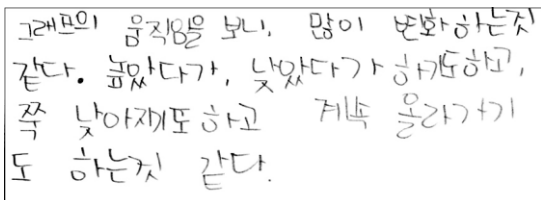 그래프의 움직임을 보니, 많이 변화하는것
같다. 높았다가, 낮았다가 하기도하고,
쭉 낮아지기도 하고 계속 올라가기
도 하는것 같다.